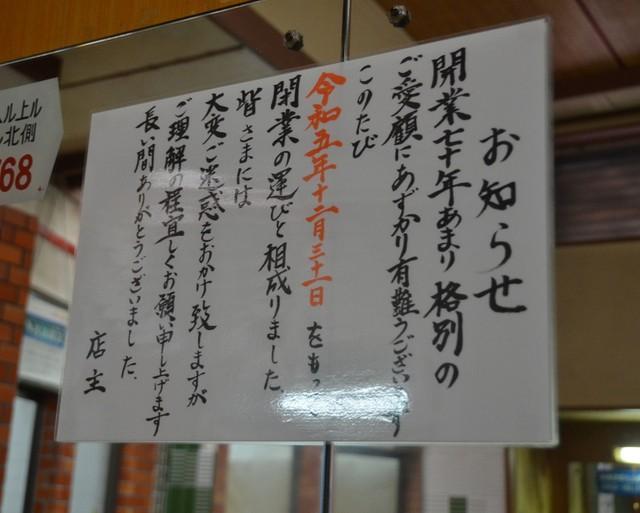 お知らせ
開業七十年あまり格別の
ご愛顧にあずかり有難うございます
このたび
令和五年十二月三十一日をもって
閉業の運びと相成りました
皆さまには
大変ご迷惑をおかけ致しますが
ご理解の程宜しくお願い申し上げます
長い間ありがとうございました。
店主
ル上ル
北側
68